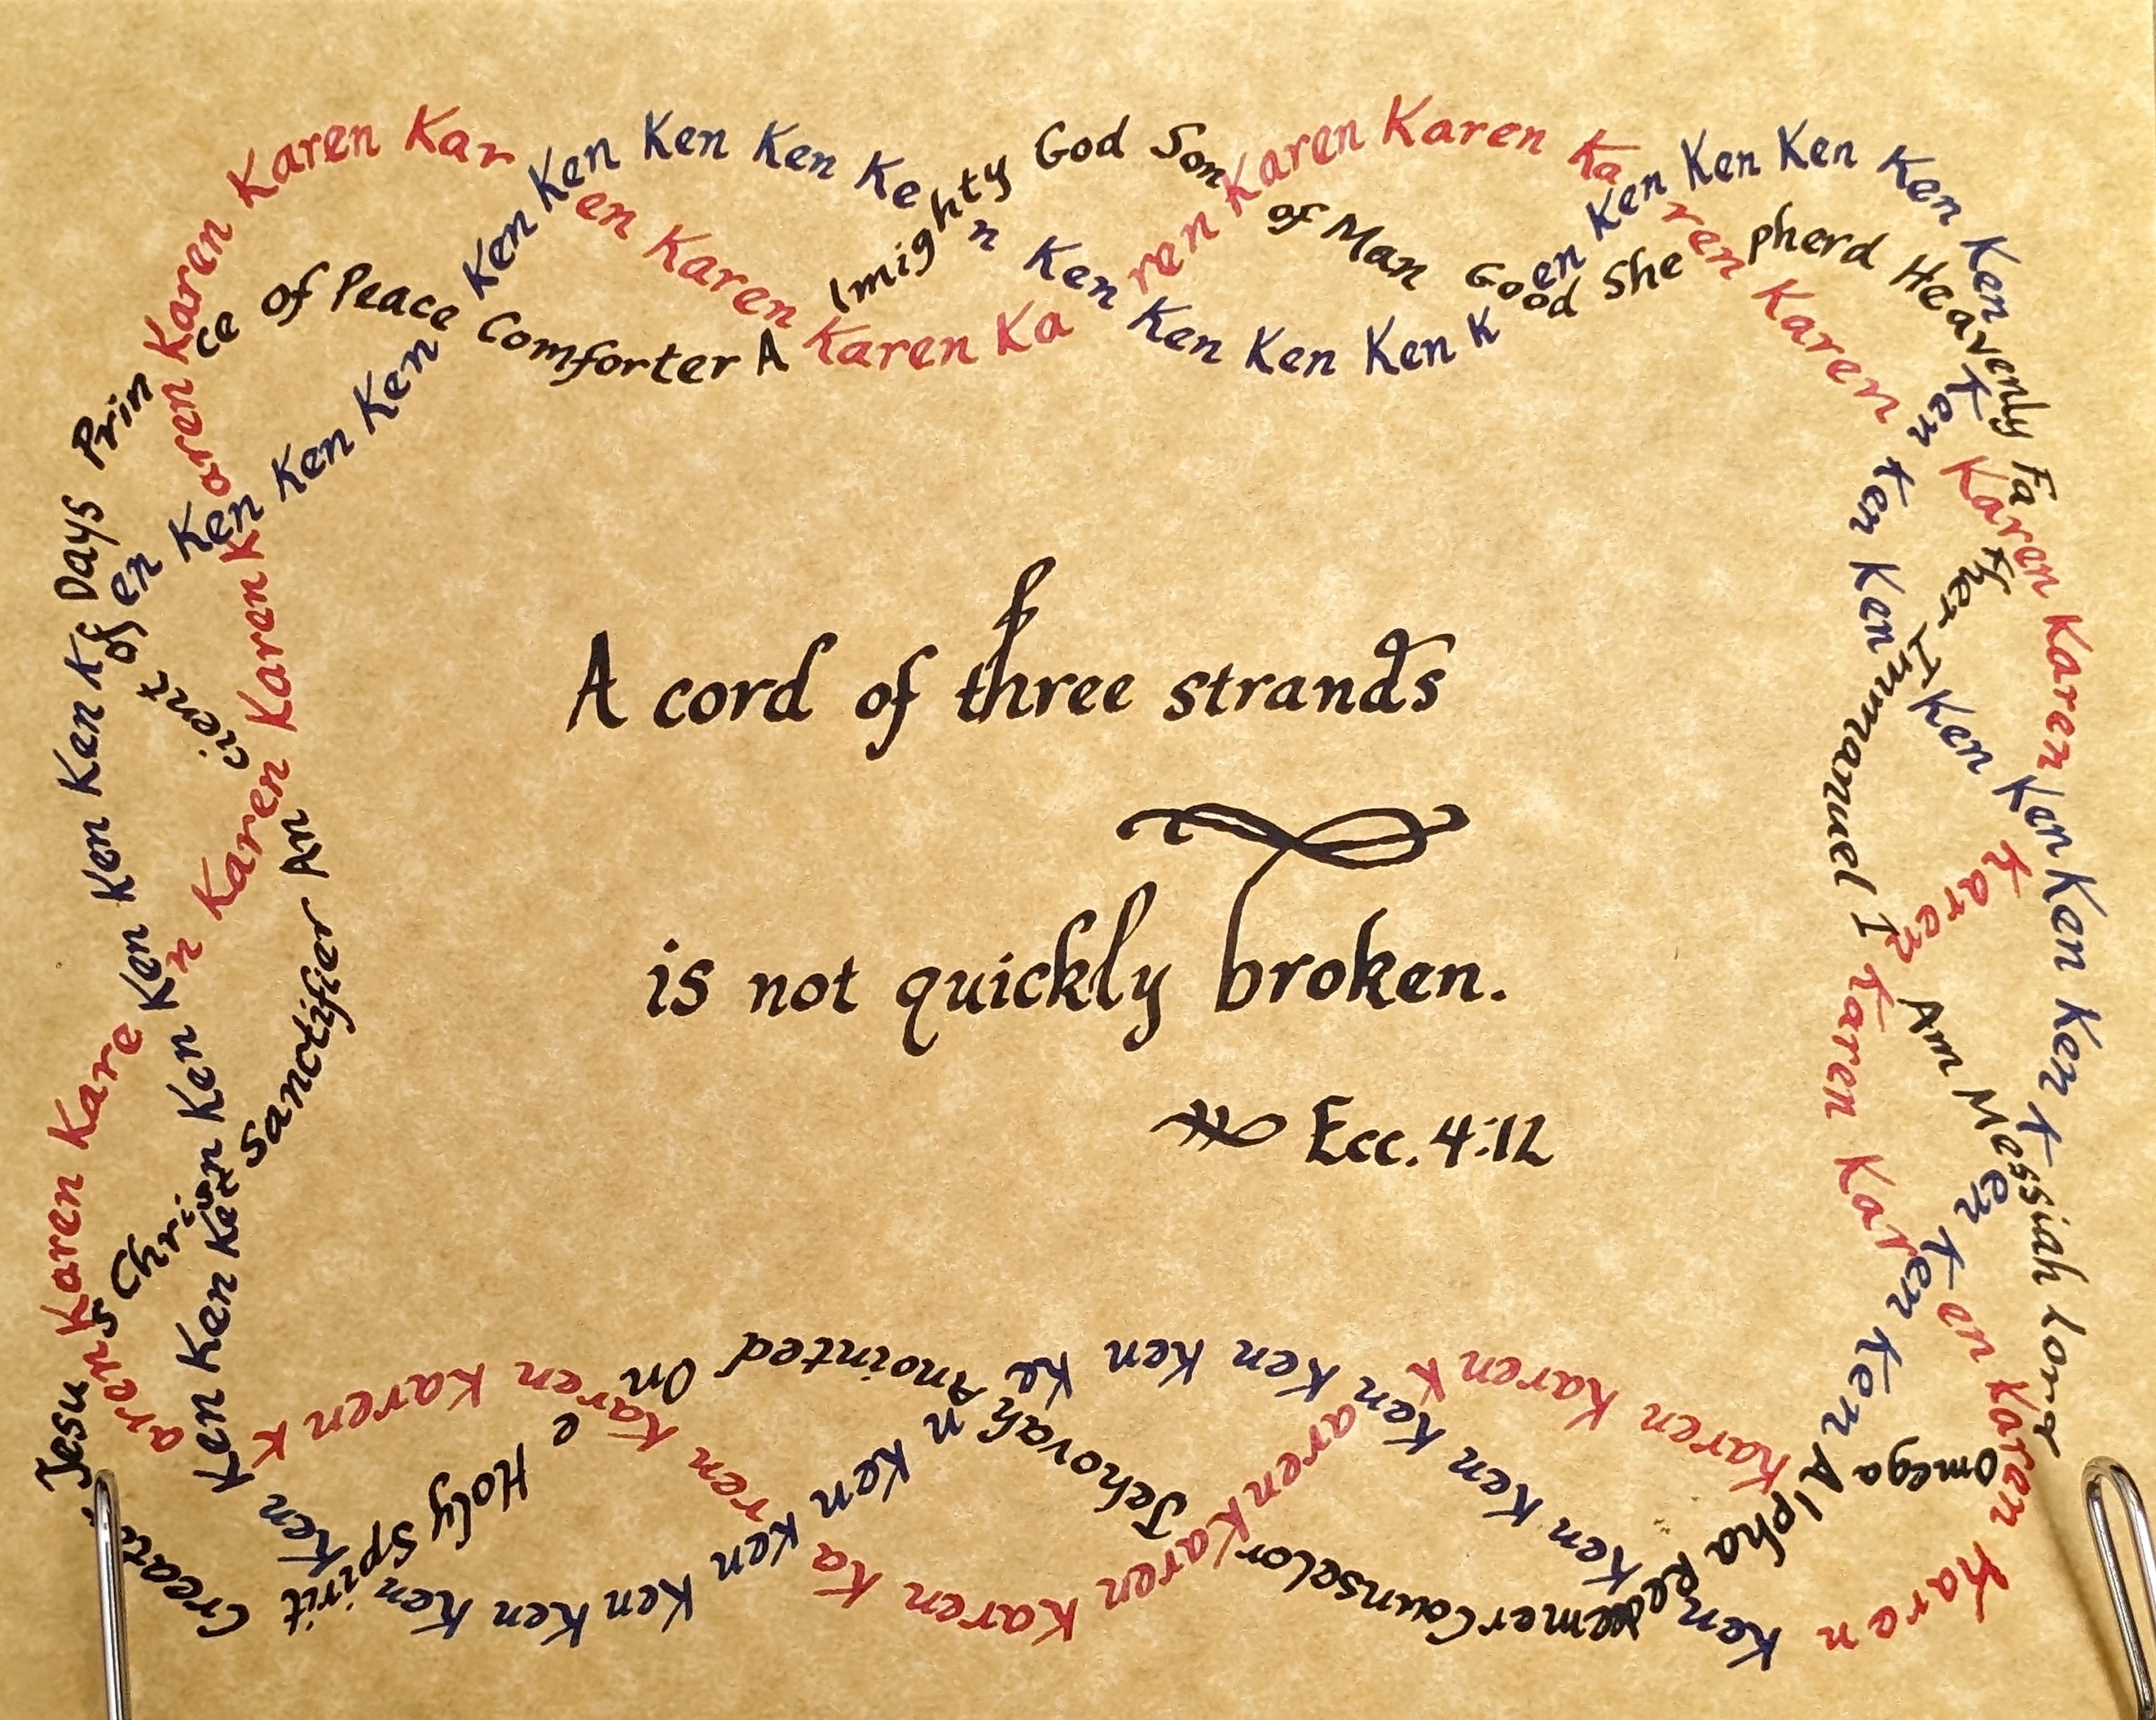 A cord of three strands
is not quickly broken.
Ecc. 4:12
Karen Karen Karen Karen Karen Karen Karen Karen Karen Karen Karen Karen Karen Karen Karen Karen Karen Karen Karen Karen Karen Karen Karen Karen Karen Karen Karen Karen Karen Karen
Ken Ken Ken Ken Ken Ken Ken Ken Ken Ken Ken Ken Ken Ken Ken Ken Ken Ken Ken Ken Ken Ken Ken Ken Ken Ken Ken Ken Ken Ken Ken Ken Ken Ken Ken Ken Ken Ken Ken Ken Ken Ken Ken Ken Ken Ken Ken Ken Ken Ken
Jesus Christ Sanctifier Ancient of Days Prince of Peace Comforter Almighty God Son of Man Good Shepherd Heavenly Father Immanuel I Am Messiah Lord
Omega Alpha Redeemer Counselor Jehovah Anointed One Holy Spirit